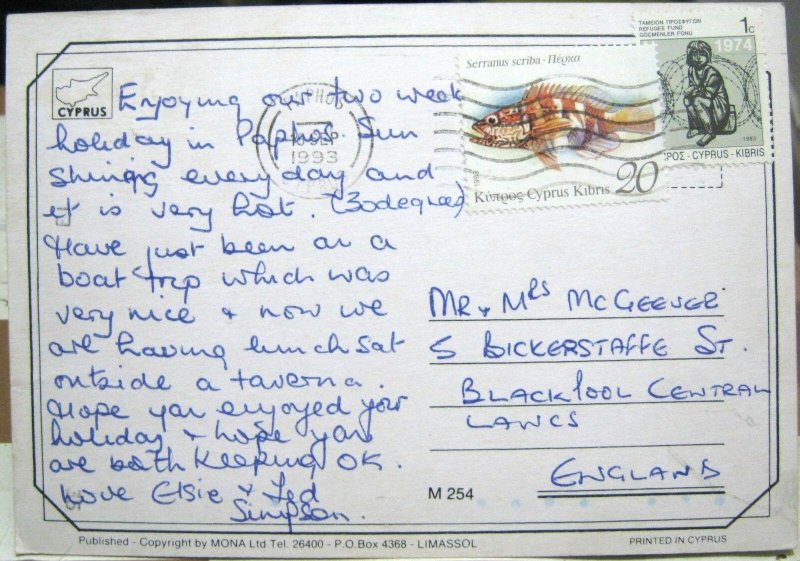 CYPRUS
Enjoying our two week
holiday in Paphos. Sun
shining every day and
it is very hot. (30 degrees)
Have just been on a
boat trip which was
very nice & now we
are having lunch sat
outside a taverna.
Hope you enjoyed your
holiday & hope you
are both keeping OK.
Love Elsie & Ted
Simpson.
1993
Serranus scriba · Πέρκα
1993
Κύπρος Cyprus Kıbrıs 20
ΤΑΜΕΙΟΝ ΠΡΟΣΦΥΓΩΝ
REFUGEE FUND
GÖÇMENLER FONU
1c
1974
1993
ΡΟΣ - CYPRUS - KIBRIS
MR & MRS MCGEEVER
5 BICKERSTAFFE ST.
BLACKPOOL CENTRAL
LANCS
ENGLAND
M 254
Published - Copyright by MONA Ltd Tel. 26400 - P.O.Box 4368 - LIMASSOL
PRINTED IN CYPRUS